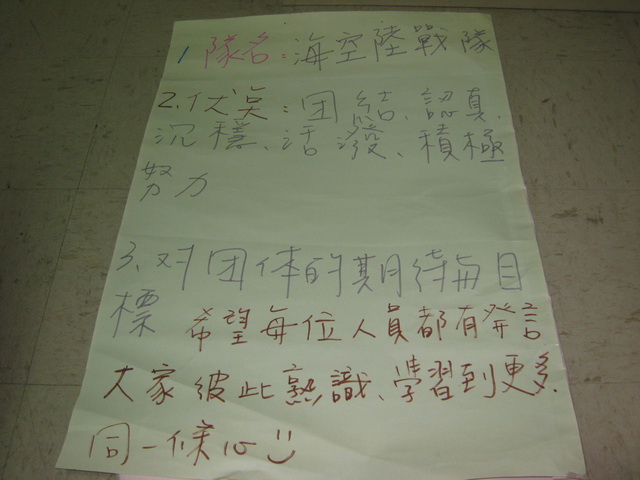 1 隊名：海空陸戰隊
2、优矣：团結、認真、
沉穩、活潑、積極
努力
3、对团体的期待與目
標 希望每位人員都有発言
大家彼此熟識、學習到更多、
同一條心